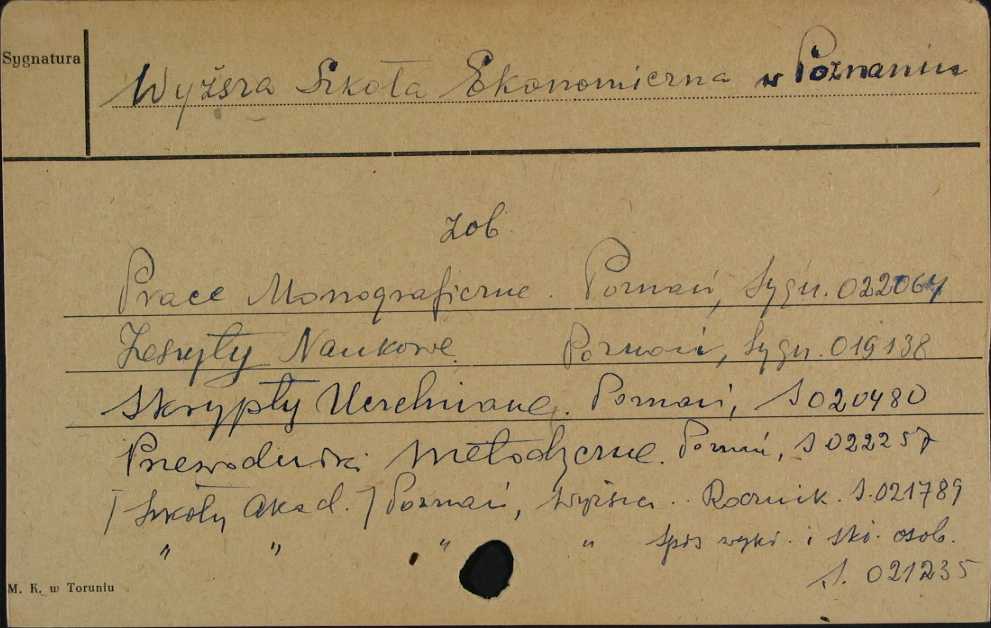 Sygnatura
Wyższa Szkoła Ekonomiczna w Poznaniu
zob.
Prace Monograficzne. Poznań, Sygn. 022064
Zeszyty Naukowe. Poznań, Sygn. 019138
Skrypty Uczelniane. Poznań, S 020480
Przewodniki metodyczne. Poznań, S 022257
[Szkoły Akad.] Poznań, Wyższa.. Rocznik. S. 021789
" " " " Spis wykł. i skł. osob.
S. 021235
M. K. w Toruniu